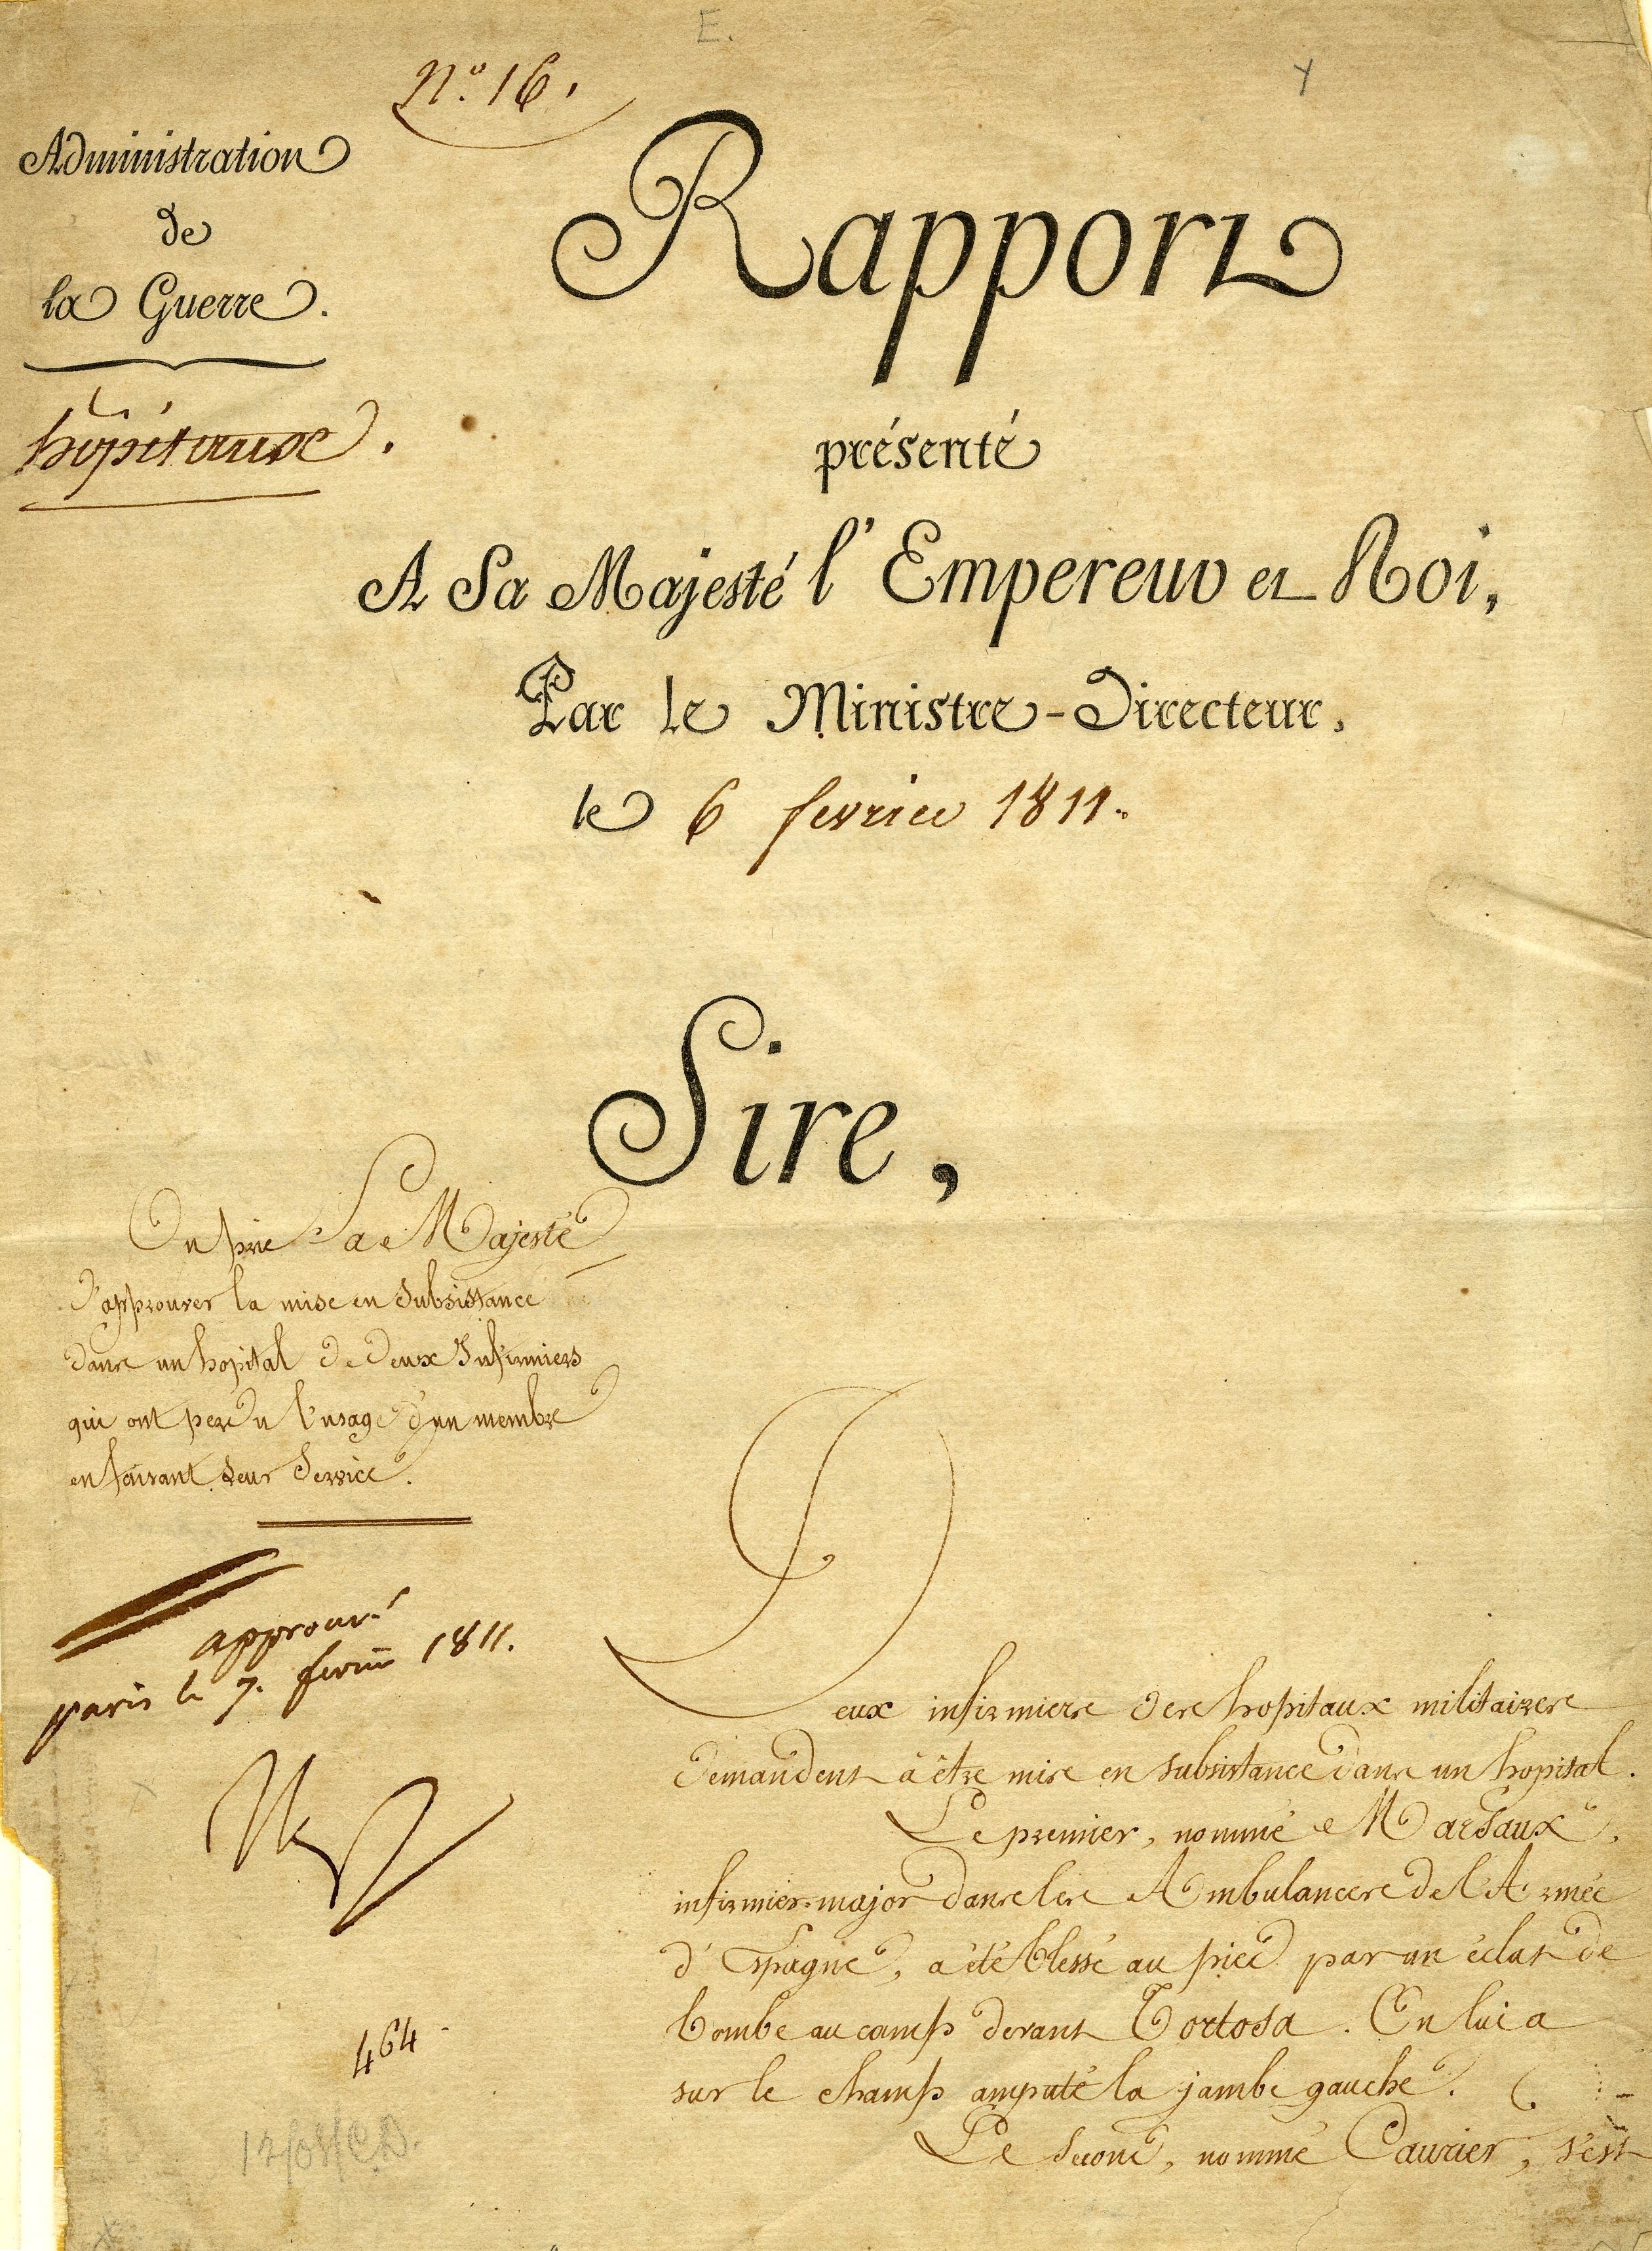 E.
Y
N.o 16.
Administration
de
la Guerre.
hôpitaux.
Rapport
présenté
A Sa Majesté l'Empereur et Roi,
Par le Ministre-Directeur,
le 6 fevrier 1811.
Sire,
On prie Sa Majesté
d'approuver la mise en Subsistance
dans un hopital de deux Infirmiers
qui ont perdu l'usage d'un membre
en faisant leur Service.
approuvé
paris le 7. fevrier 1811.
464
Deux infirmiers des hopitaux militaires
demandent à être mis en subsistance dans un hopital.
Le premier, nommé Marsaux,
infirmier-major dans les Ambulances de l'Armée
d'Espagne, a été blessé au pied par un éclat de
bombe au camp devant Tortosa. On lui a
sur le champ amputé la jambe gauche.
Le Second, nommé Caurier, s'est